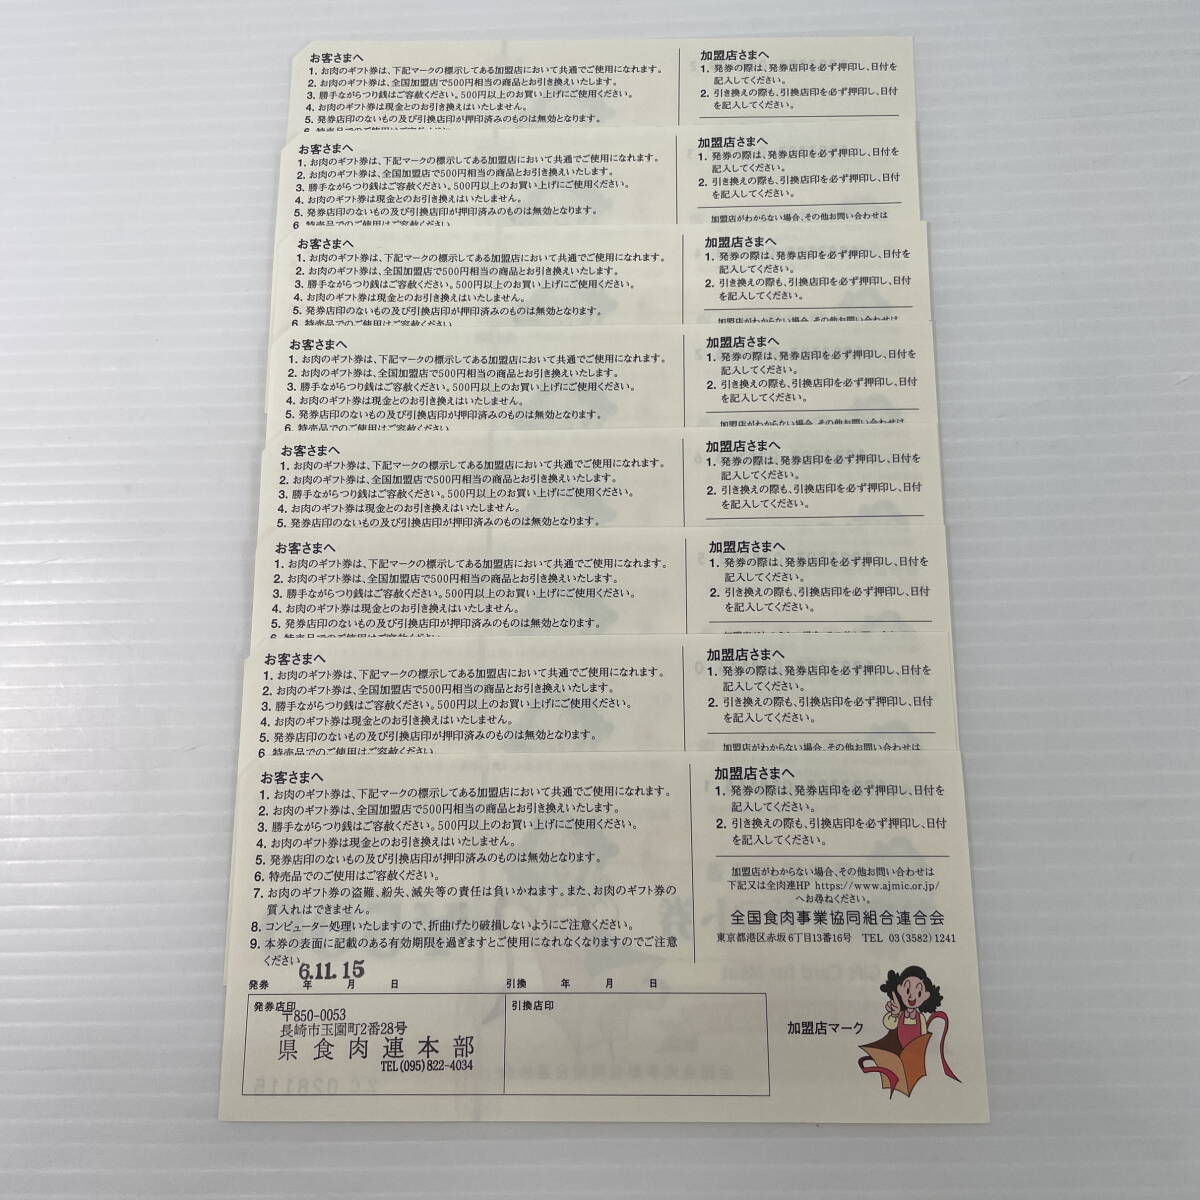 お客さまへ
1. お肉のギフト券は、下記マークの標示してある加盟店において共通でご使用になれます。
2. お肉のギフト券は、全国加盟店で500円相当の商品とお引き換えいたします。
3. 勝手ながらつり銭はご容赦ください。500円以上のお買い上げにご使用ください。
4. お肉のギフト券は現金とのお引き換えはいたしません。
5. 発券店印のないもの及び引換店印が押印済みのものは無効となります。
6. 特売品でのご使用はご容赦ください。
加盟店さまへ
1. 発券の際は、発券店印を必ず押印し、日付を
記入してください。
2. 引き換えの際も、引換店印を必ず押印し、日付
を記入してください。
お客さまへ
1. お肉のギフト券は、下記マークの標示してある加盟店において共通でご使用になれます。
2. お肉のギフト券は、全国加盟店で500円相当の商品とお引き換えいたします。
3. 勝手ながらつり銭はご容赦ください。500円以上のお買い上げにご使用ください。
4. お肉のギフト券は現金とのお引き換えはいたしません。
5. 発券店印のないもの及び引換店印が押印済みのものは無効となります。
6. 特売品でのご使用はご容赦ください。
加盟店さまへ
1. 発券の際は、発券店印を必ず押印し、日付を
記入してください。
2. 引き換えの際も、引換店印を必ず押印し、日付
を記入してください。
加盟店がわからない場合、その他お問い合わせは
お客さまへ
1. お肉のギフト券は、下記マークの標示してある加盟店において共通でご使用になれます。
2. お肉のギフト券は、全国加盟店で500円相当の商品とお引き換えいたします。
3. 勝手ながらつり銭はご容赦ください。500円以上のお買い上げにご使用ください。
4. お肉のギフト券は現金とのお引き換えはいたしません。
5. 発券店印のないもの及び引換店印が押印済みのものは無効となります。
6. 特売品でのご使用はご容赦ください。
加盟店さまへ
1. 発券の際は、発券店印を必ず押印し、日付を
記入してください。
2. 引き換えの際も、引換店印を必ず押印し、日付
を記入してください。
加盟店がわからない場合、その他お問い合わせは
お客さまへ
1. お肉のギフト券は、下記マークの標示してある加盟店において共通でご使用になれます。
2. お肉のギフト券は、全国加盟店で500円相当の商品とお引き換えいたします。
3. 勝手ながらつり銭はご容赦ください。500円以上のお買い上げにご使用ください。
4. お肉のギフト券は現金とのお引き換えはいたしません。
5. 発券店印のないもの及び引換店印が押印済みのものは無効となります。
6. 特売品でのご使用はご容赦ください。
加盟店さまへ
1. 発券の際は、発券店印を必ず押印し、日付を
記入してください。
2. 引き換えの際も、引換店印を必ず押印し、日付
を記入してください。
加盟店がわからない場合、その他お問い合わせは
お客さまへ
1. お肉のギフト券は、下記マークの標示してある加盟店において共通でご使用になれます。
2. お肉のギフト券は、全国加盟店で500円相当の商品とお引き換えいたします。
3. 勝手ながらつり銭はご容赦ください。500円以上のお買い上げにご使用ください。
4. お肉のギフト券は現金とのお引き換えはいたしません。
5. 発券店印のないもの及び引換店印が押印済みのものは無効となります。
加盟店さまへ
1. 発券の際は、発券店印を必ず押印し、日付を
記入してください。
2. 引き換えの際も、引換店印を必ず押印し、日付
を記入してください。
お客さまへ
1. お肉のギフト券は、下記マークの標示してある加盟店において共通でご使用になれます。
2. お肉のギフト券は、全国加盟店で500円相当の商品とお引き換えいたします。
3. 勝手ながらつり銭はご容赦ください。500円以上のお買い上げにご使用ください。
4. お肉のギフト券は現金とのお引き換えはいたしません。
5. 発券店印のないもの及び引換店印が押印済みのものは無効となります。
6. 特売品でのご使用はご容赦ください。
加盟店さまへ
1. 発券の際は、発券店印を必ず押印し、日付を
記入してください。
2. 引き換えの際も、引換店印を必ず押印し、日付
を記入してください。
お客さまへ
1. お肉のギフト券は、下記マークの標示してある加盟店において共通でご使用になれます。
2. お肉のギフト券は、全国加盟店で500円相当の商品とお引き換えいたします。
3. 勝手ながらつり銭はご容赦ください。500円以上のお買い上げにご使用ください。
4. お肉のギフト券は現金とのお引き換えはいたしません。
5. 発券店印のないもの及び引換店印が押印済みのものは無効となります。
6. 特売品でのご使用はご容赦ください。
加盟店さまへ
1. 発券の際は、発券店印を必ず押印し、日付を
記入してください。
2. 引き換えの際も、引換店印を必ず押印し、日付
を記入してください。
加盟店がわからない場合、その他お問い合わせは
お客さまへ
1. お肉のギフト券は、下記マークの標示してある加盟店において共通でご使用になれます。
2. お肉のギフト券は、全国加盟店で500円相当の商品とお引き換えいたします。
3. 勝手ながらつり銭はご容赦ください。500円以上のお買い上げにご使用ください。
4. お肉のギフト券は現金とのお引き換えはいたしません。
5. 発券店印のないもの及び引換店印が押印済みのものは無効となります。
6. 特売品でのご使用はご容赦ください。
7. お肉のギフト券の盗難、紛失、滅失等の責任は負いかねます。また、お肉のギフト券の
質入れはできません。
8. コンピューター処理いたしますので、折曲げたり破損しないようにご注意ください。
9. 本券の表面に記載のある有効期限を過ぎますとご使用になれなくなりますのでご注意
ください。
6.11.15
発券 年 月 日 引換 年 月 日
発券店印
〒850-0053
長崎市玉園町2番28号
県食肉連本部
TEL(095)822-4034
引換店印
加盟店さまへ
1. 発券の際は、発券店印を必ず押印し、日付を
記入してください。
2. 引き換えの際も、引換店印を必ず押印し、日付
を記入してください。
加盟店がわからない場合、その他お問い合わせは
下記又は全肉連HP https://www.ajmic.or.jp/
へお尋ねください。
全国食肉事業協同組合連合会
東京都港区赤坂6丁目13番16号 TEL 03(3582)1241
加盟店マーク